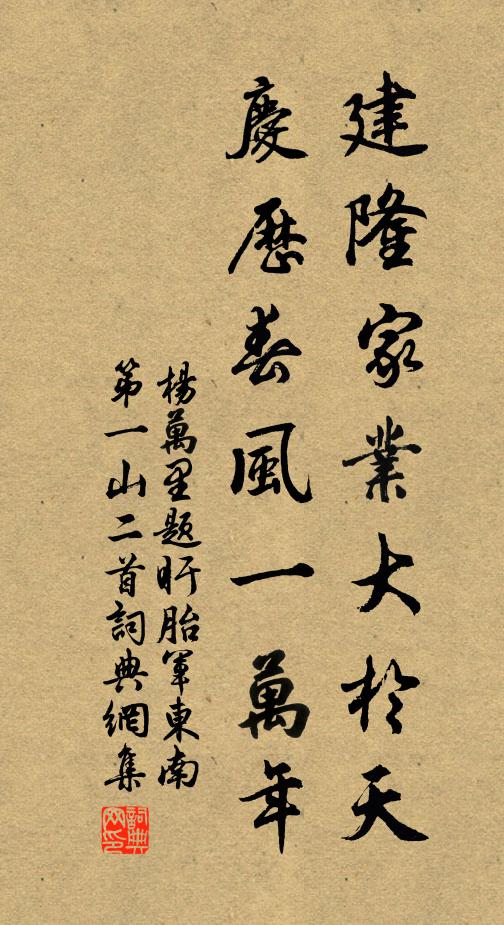 建隆家業大於天
慶曆春風一萬年
楊萬里題盱眙軍東南
第一山二首詞典網集
詞典
网印